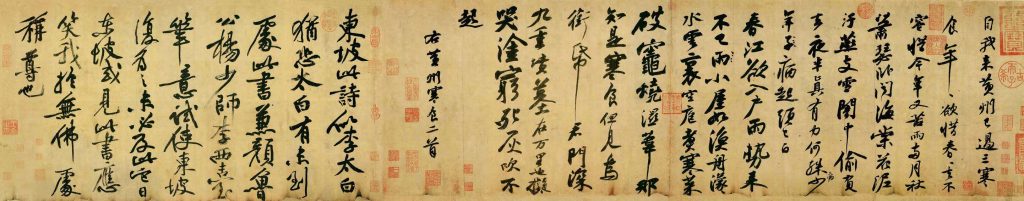 自我來黃州已過三寒
食年〻欲惜春〻去不
容惜今年又苦雨兩月秋
蕭瑟臥聞海棠花泥
汙燕支雪闇中偷負
去夜半真有力何殊病少
年子病起頭已白
春江欲入戶雨勢來
不已雨小屋如漁舟濛〻
水雲裏空庖煮寒菜
破竈燒濕葦那
知是寒食但見烏
銜帋君門深
九重墳墓在萬里也擬
哭塗窮死灰吹不
起
右黃州寒食二首
東坡此詩似李太白
猶恐太白有未到
處此書兼顏魯
公楊少師李西臺
筆意試使東坡
復為之未必及此它日
東坡或見此書應
笑我於無佛處
稱尊也